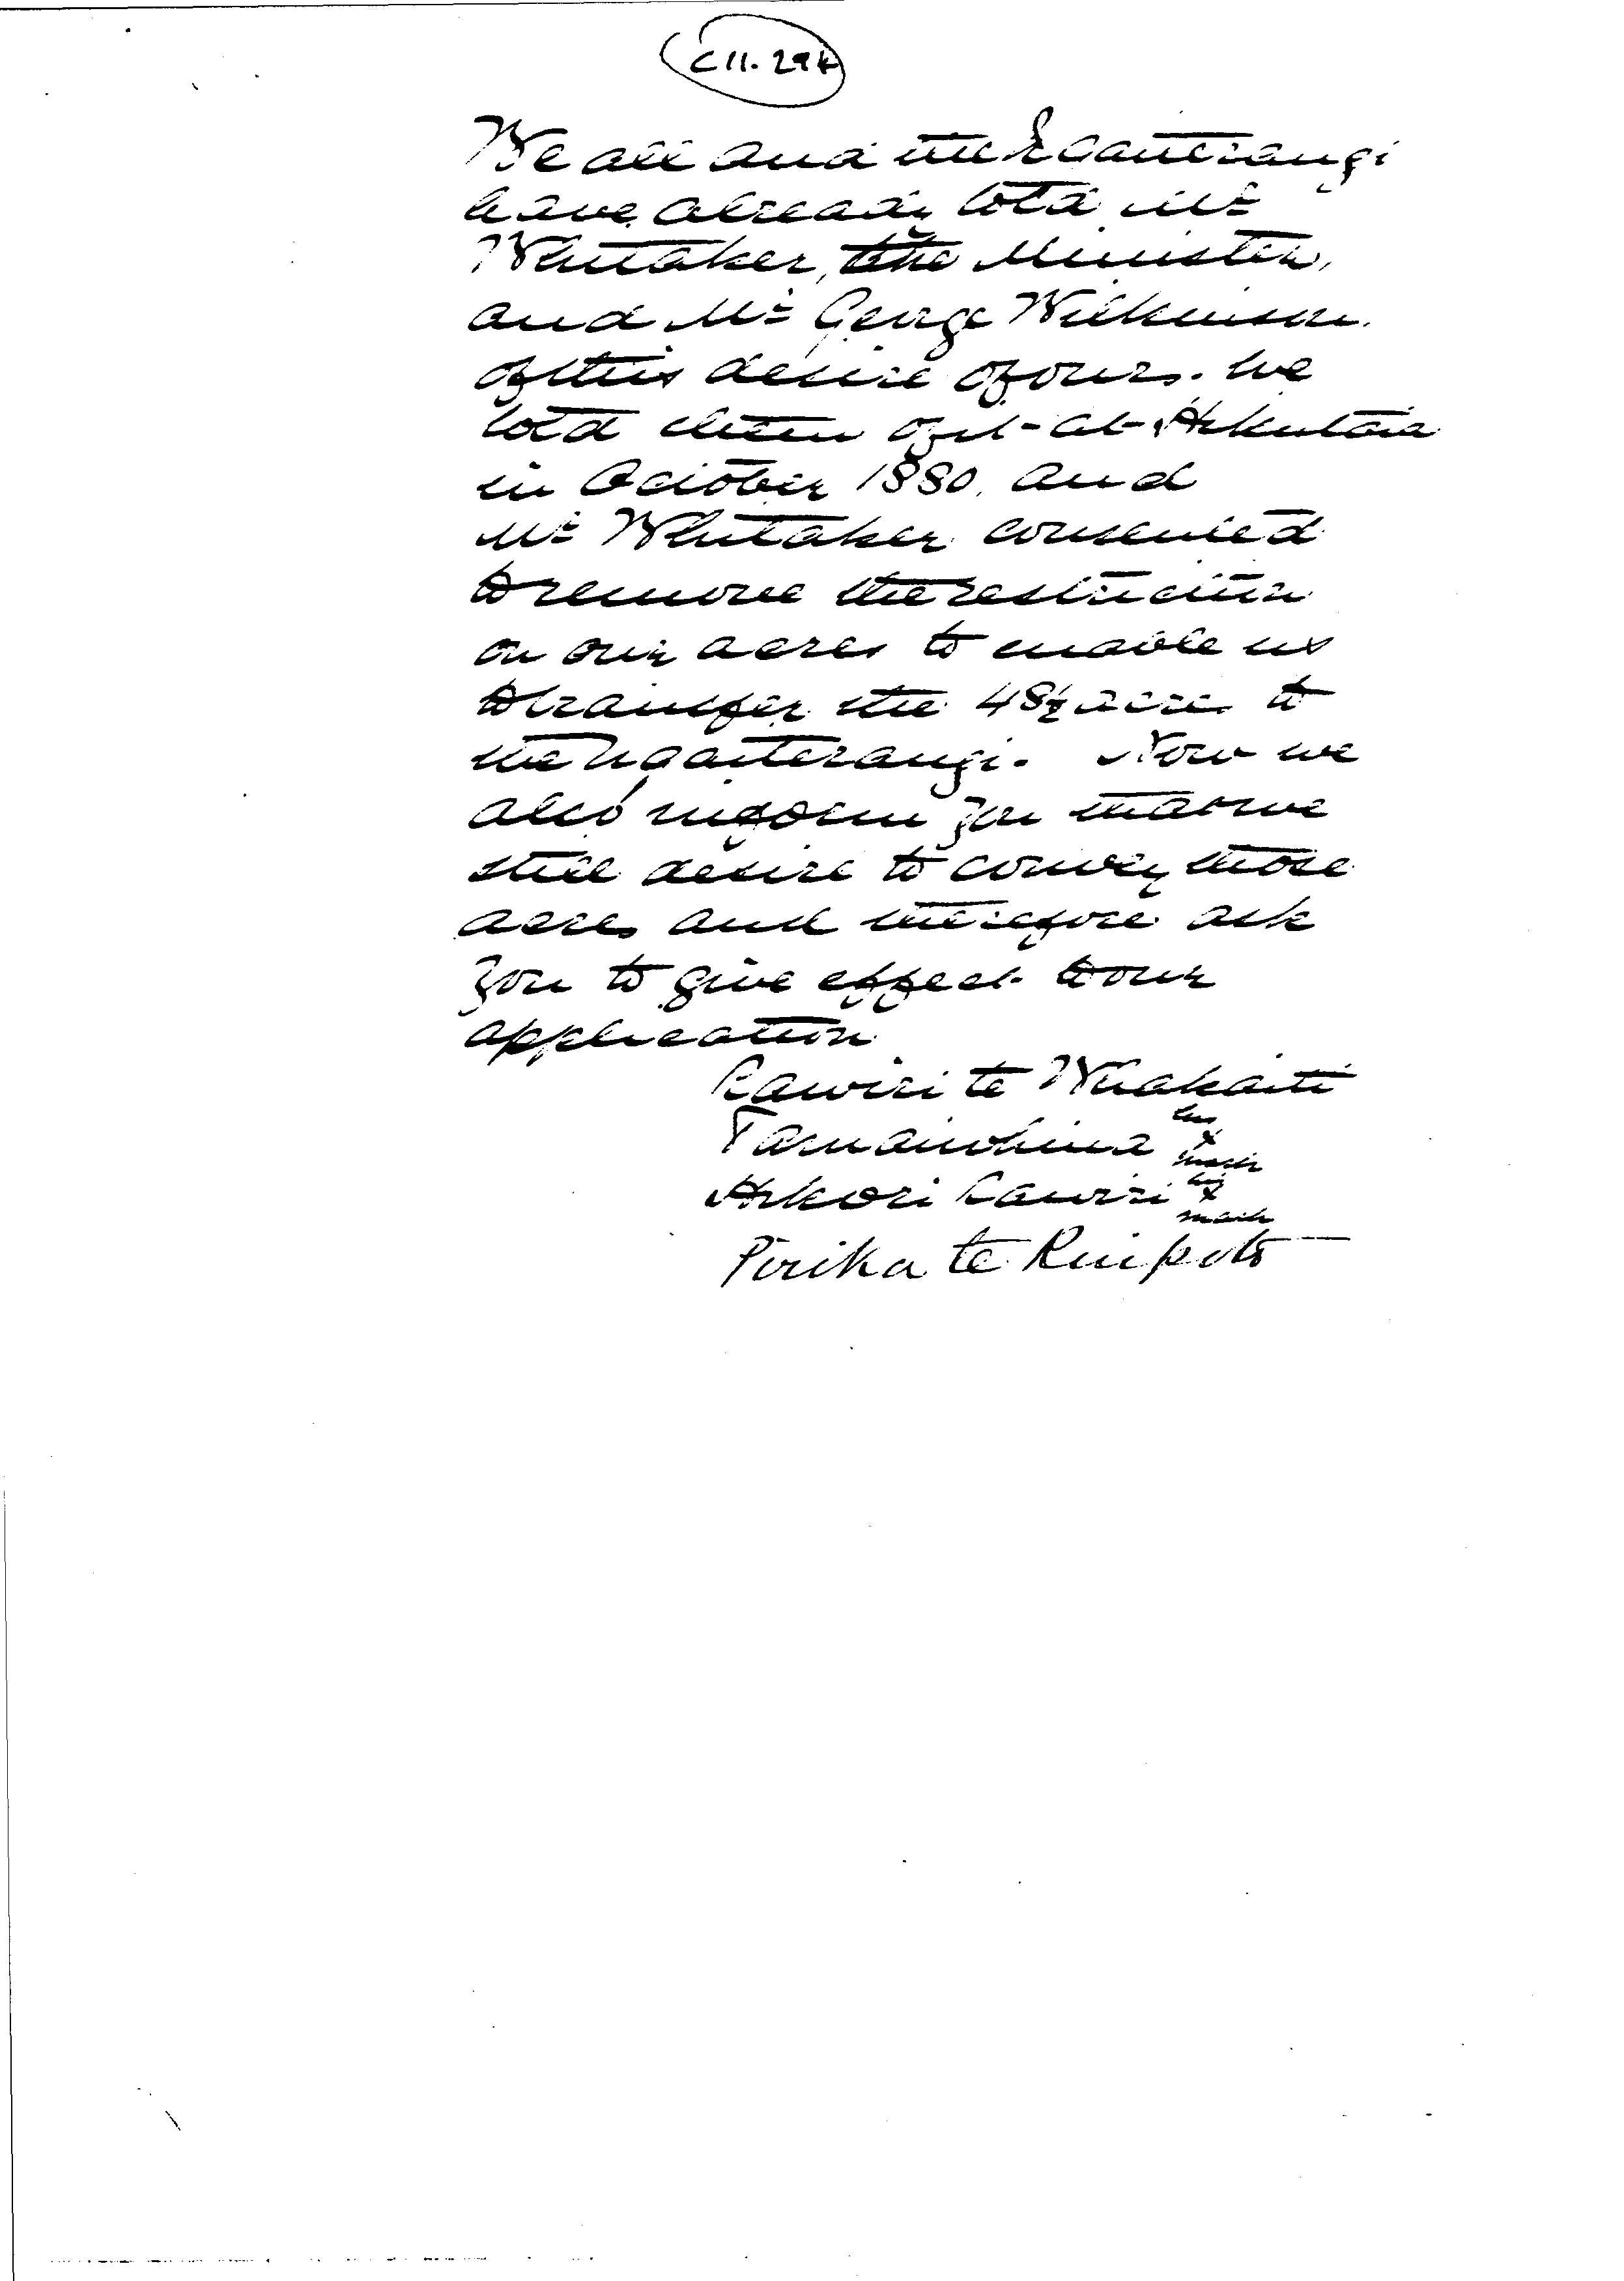 C11.294
We all and the Ngaiterangi
have already told Mr
Whitaker, the Minister,
and Mr George Wilkinson
of this desire of ours. We
told them of it at
in October 1880. and
Mr Whitaker consented
to remove the restriction
on our acres to enable us
to transfer the 48½ acres to
the Ngaiterangi. Now we
also inform you that we
still desire to convey those
acres and therefore ask
you to give effect to our
application
Rawiri te Whakaiti
his
x
mark
Akori Rawiri his
x
mark
Pirika te Ruipoto